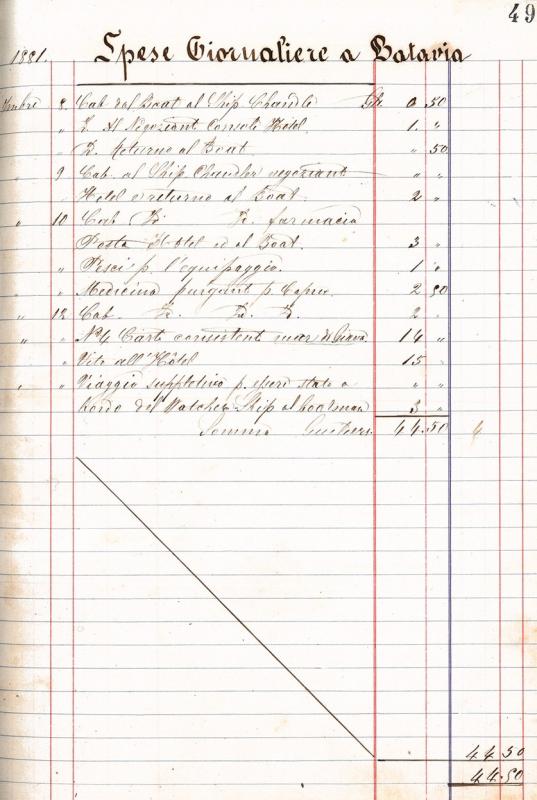 49
1881. Spese Giornaliere a Batavia
8. Cab dal Boat al Ship Chandle 0 50
" Al Negoziant Consoli Hôtel. 1. "
" D. Retorno al Boat " 50
9 Cab. al Ship Chandler negoziant " "
Hotel e returno al Boat. 2 "
" 10 Cab farmacia
Posta Hotel ed al Boat. 3 "
" Pesci p. l'equipaggio. 1 "
" Medicina purgant p. 2 50
" 12 Cab. D. D. D. 2 "
" " No 4 Carti consistent mar di Giava 14 "
" Vito all'Hôtel 15 "
" " Viaggio suppletivo p. essere stato a " "
bordo del Ship 3 "
Somma 44.50
44 50
44.50